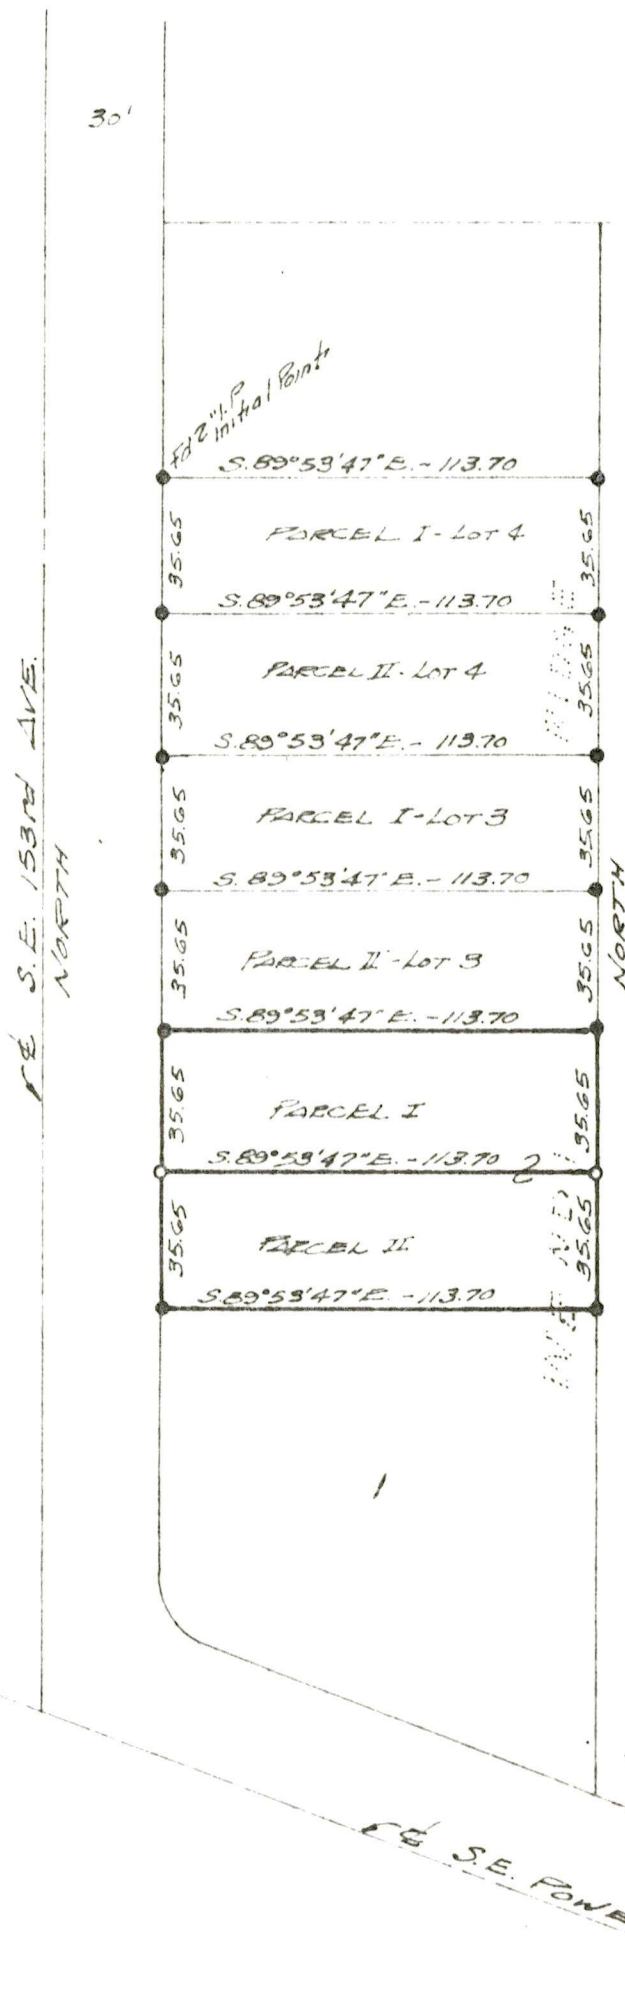 30'
Fd 2" I.P.
Initial Point
S.89°53'47"E.-113.70
35.65
PARCEL I-LOT 4
35.65
S.89°53'47"E.-113.70
35.65
PARCEL II-LOT 4
35.65
S.89°53'47"E.-113.70
35.65
PARCEL I-LOT 3
35.65
S.89°53'47"E.-113.70
35.65
PARCEL II-LOT 3
35.65
S.89°53'47"E.-113.70
35.65
PARCEL I
35.65
S.89°53'47"E.-113.70
2
35.65
PARCEL II
35.65
S.89°53'47"E.-113.70
℄ S.E. 153rd AVE.
NORTH
NORTH
1
℄ S.E. POWE